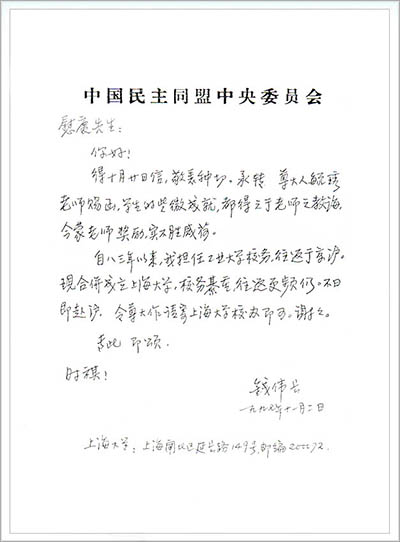 中国民主同盟中央委员会
慰慶先生:
你好!
得十月廿日信,敬悉种切。承转 尊大人毓琇
老师赐函,学生的些微成就,都得之于老师之教诲,
今蒙老师奖励,实不胜感荷。
自八三年以来,我担任工业大学校务,往返于京沪。
现合併成立上海大学,校务綦重,往返更频仍。不日
即赴沪,令尊大作请寄上海大学校办即可。谢谢。
专此 即颂
时祺!
钱伟长
一九九 年十一月二日
上海大学:上海闸北区延长路149号,邮编200072.